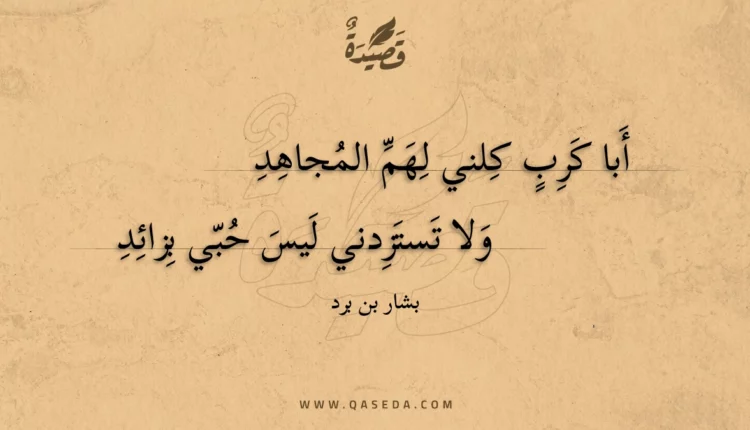 قَصِيْدَةٌ
أَبا كَرِبٍ كِلني لِهَمِّ المُجاهِدِ
وَلا تَستَزِدني لَيسَ حُبّي بِزائِدِ
بشار بن برد
WWW.QASEDA.COM